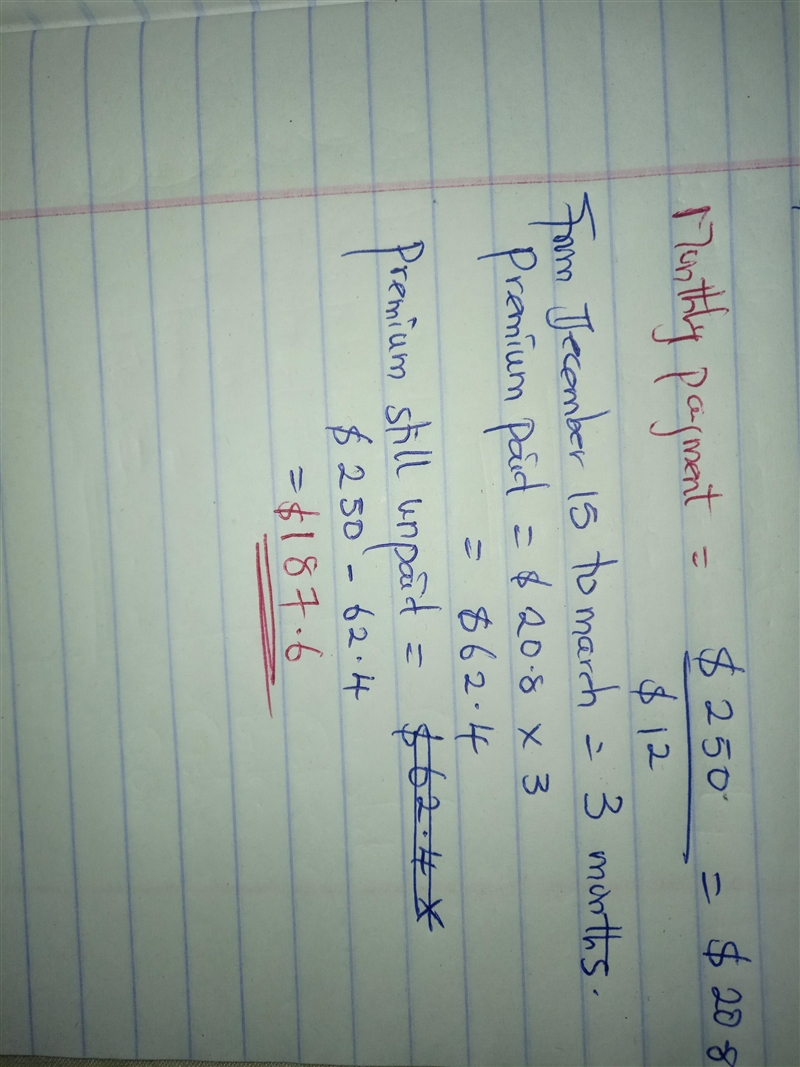 Monthly payment = $ 250 = $ 20.8
$ 12
From December 15 to march = 3 months.
Premium paid = $ 20.8 × 3
= $ 62.4
Premium still unpaid = $ 62.4 ×
$ 250 - 62.4
= $187.6